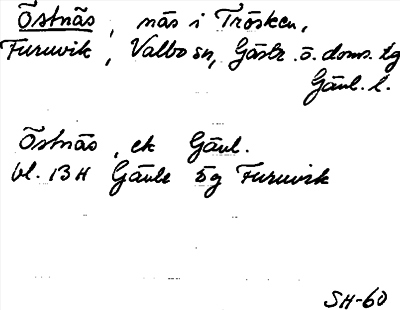 Östnäs, näs i Trösken,
Furuvik, Valbo sn, Gästr. ö. doms. tg
Gävl. l.
Östnäs, ek Gävl.
bl. 13H Gävle SÖ Furuvik
SH-60